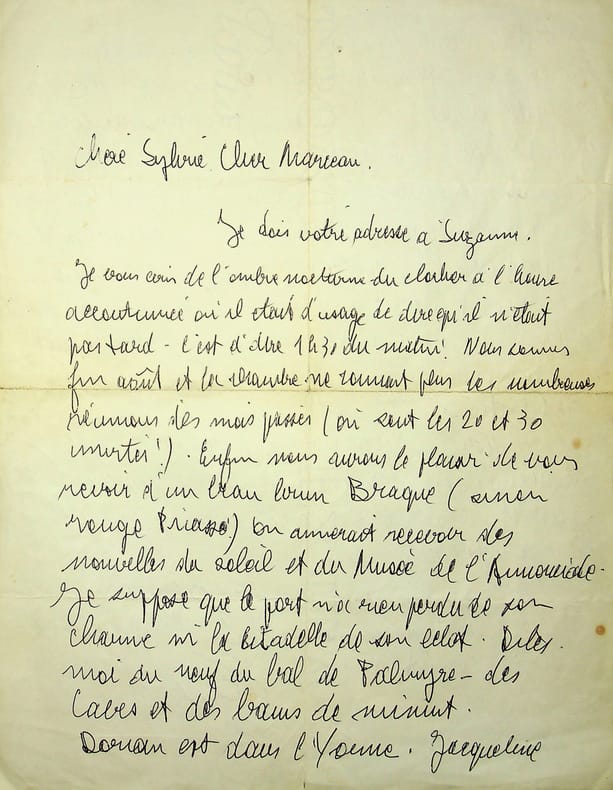 Chère Sylvie. Cher Marceau.
Je dois votre adresse à Suzanne.
Je vous écris de l'ombre nocturne du clocher à l'heure
accoutumée où il était d'usage de dire qu'il n'était
pas tard - c'est à dire 1h30 du matin! Nous sommes
fin août et la chambre ne connait plus les nombreuses
réunions des mois passés (où sont les 20 et 30
invités!). Enfin nous aurons le plaisir de vous
revoir d'un beau brun Braque (sinon
rouge Picasso) on aimerait recevoir des
nouvelles du soleil et du Musée de l'Annonciade.
Je suppose que le port n'a rien perdu de son
charme ni la citadelle de son éclat. Dites
moi du neuf du bal de Palmyre - des
Caves et des bains de minuit.
est dans l'Yonne. Jacqueline